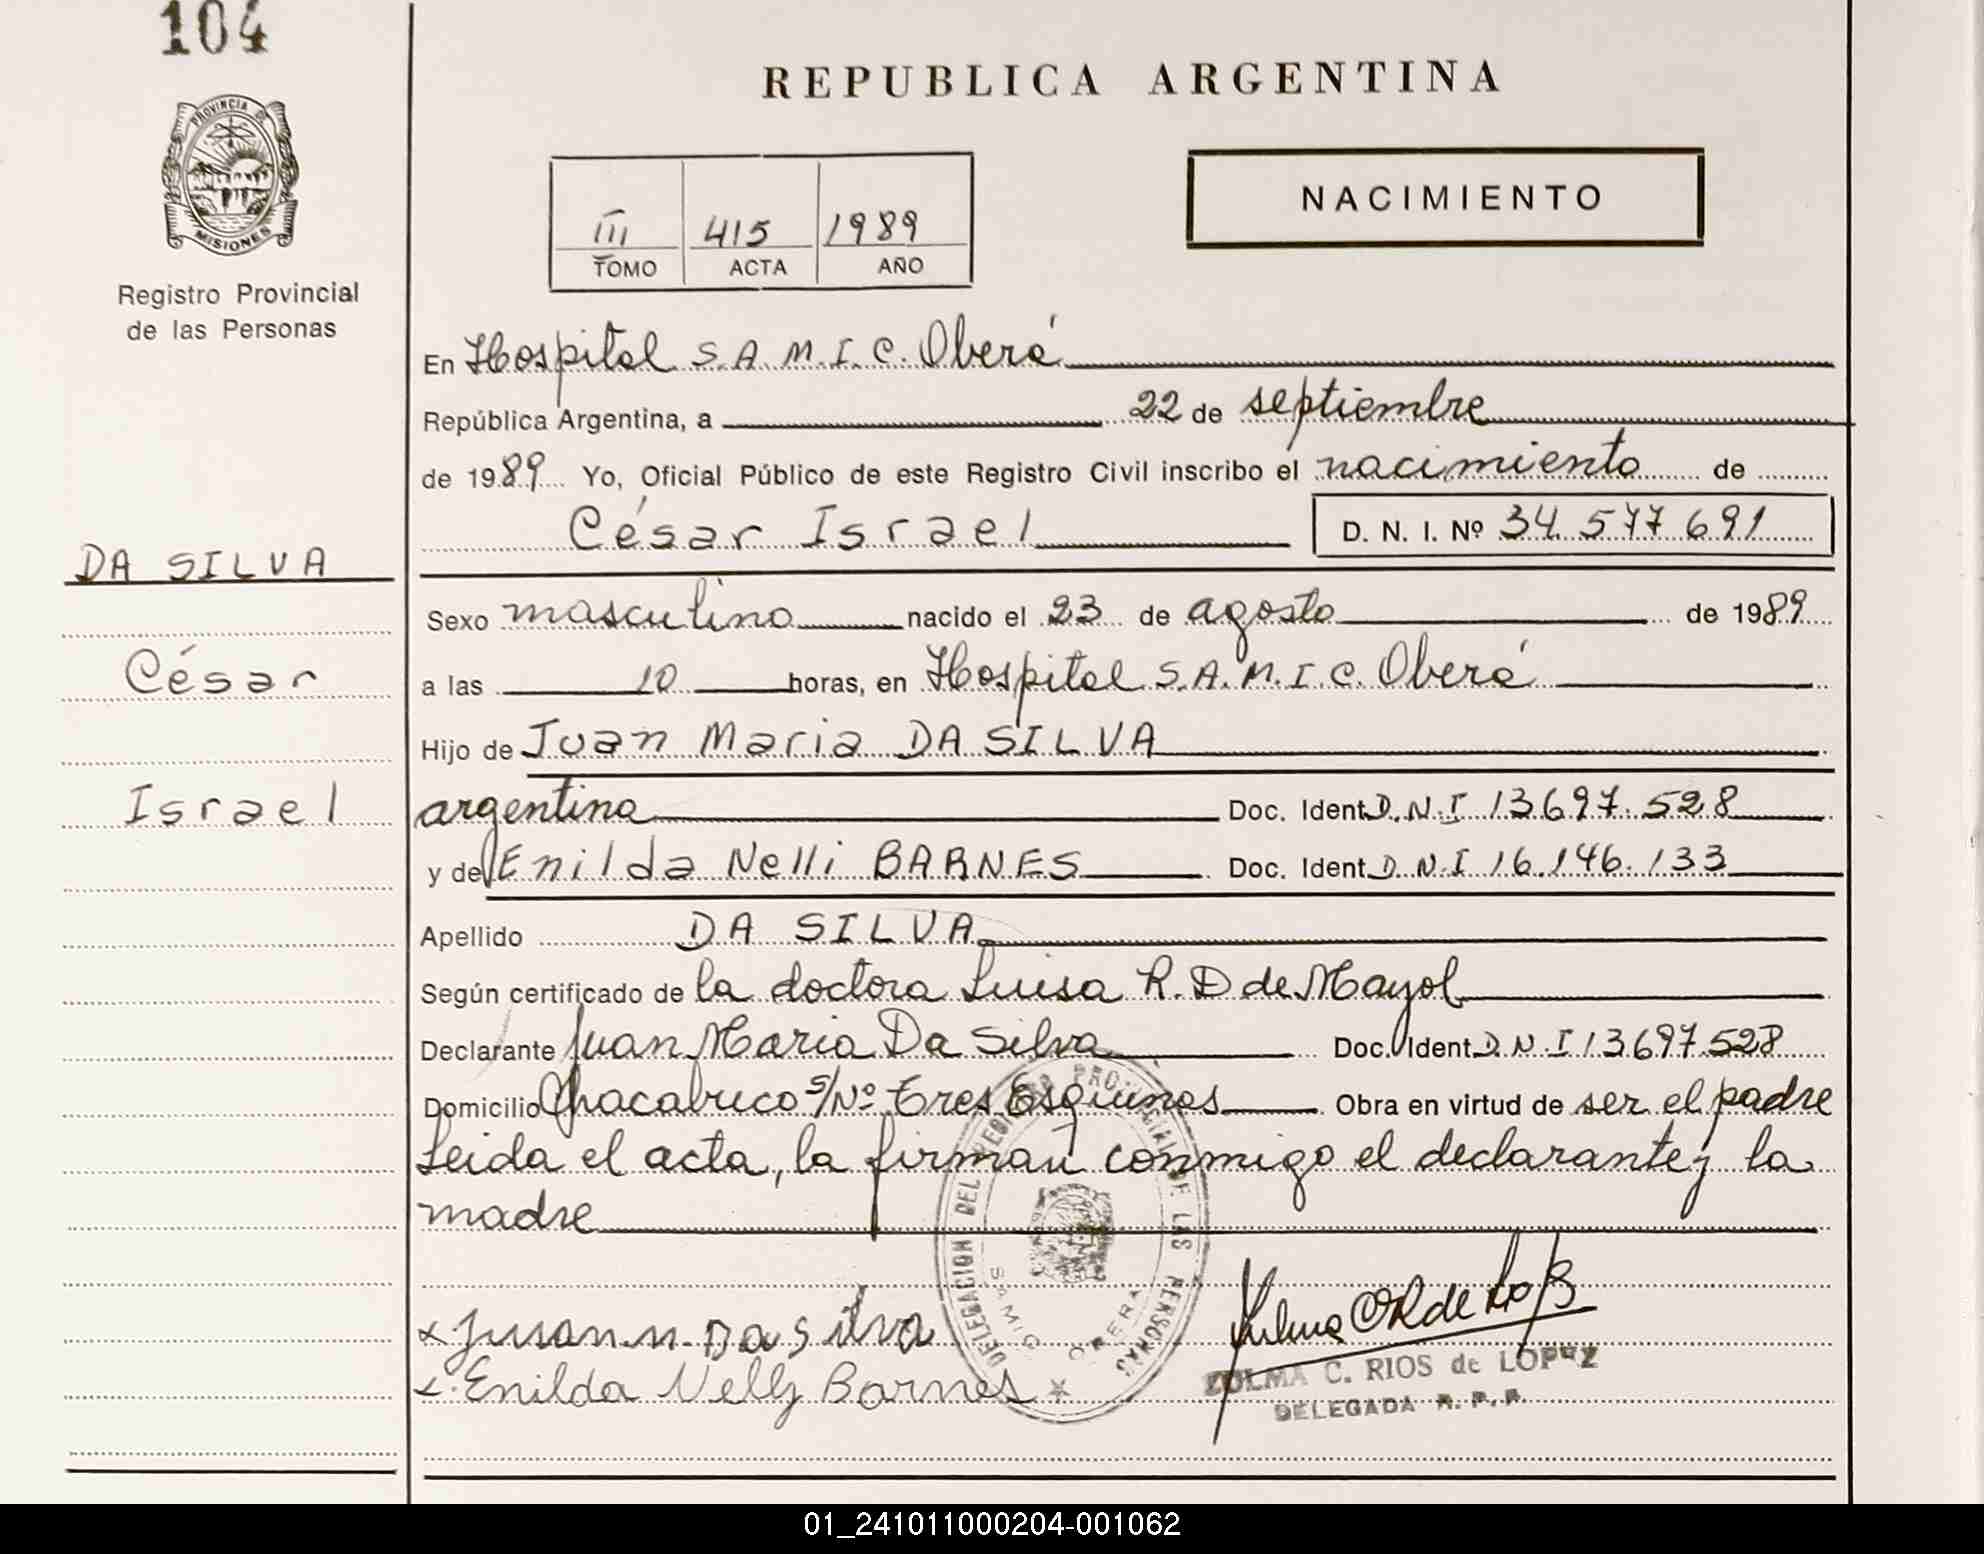 104
PROVINCIA DE
MISIONES
Registro Provincial
de las Personas
DA SILVA
César
Israel
REPUBLICA ARGENTINA
III 415 1989
TOMO ACTA AÑO
NACIMIENTO
En Hospital S.A.M.I.C. Oberá
República Argentina, a 22 de septiembre
de 1989 Yo, Oficial Público de este Registro Civil inscribo el nacimiento de
César Israel D. N. I. Nº 34.577.691
Sexo masculino nacido el 23 de agosto de 1989
a las 10 horas, en Hospital S.A.M.I.C. Oberá
Hijo de Juan Maria DA SILVA
argentina Doc. Ident. D.N.I 13697.528
y de Enilda Nelli BARNES Doc. Ident. D.N.I 16.146.133
Apellido DA SILVA
Según certificado de la doctora Luisa R. D de Mayol
Declarante Juan Maria Da Silva Doc. Ident. D.N.I 13697.528
Domicilio Chacabuco s/Nº Tres Esquinas Obra en virtud de ser el padre
Leida el acta, la firman conmigo el declarante y la
madre
DELEGACION DEL REGISTRO PROVINCIAL DE LAS PERSONAS
x Juan M. Da Silva
x Enilda Nelly Barnes
ZULMA C. RIOS de LOPEZ
DELEGADA R. P. P.
01_241011000204-001062